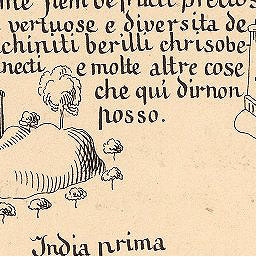 vertuose e diversita de
chiniti berilli chrisobe
necti e molte altre cose
che qui dirnon
posso.
India prima